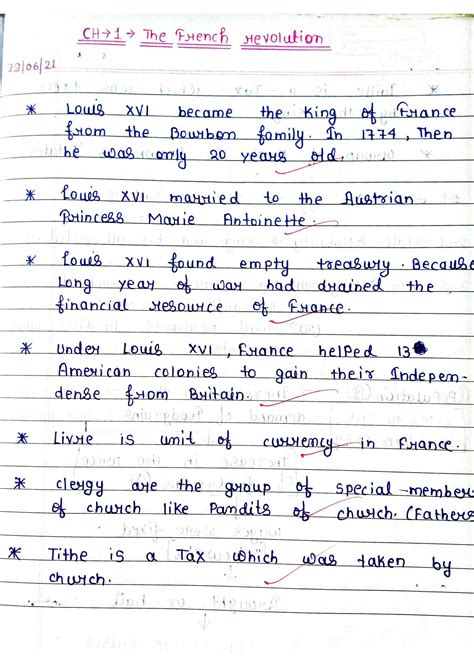 CH→1→ The French revolution
29/06/21
* Louis XVI became the King of France
from the Bourbon family. In 1774, Then
he was only 20 years old.
* Louis XVI married to the Austrian
Princess Marie Antoinette.
* Louis XVI found empty treasury. Because
Long year of war had drained the
financial resource of France.
* Under Louis XVI, France helped 13
American colonies to gain their Indepen-
dense from Britain.
* Livre is unit of currency in France.
* clergy are the group of special member
of church like Pandits of church. (Fathers
* Tithe is a Tax which was taken by
church.